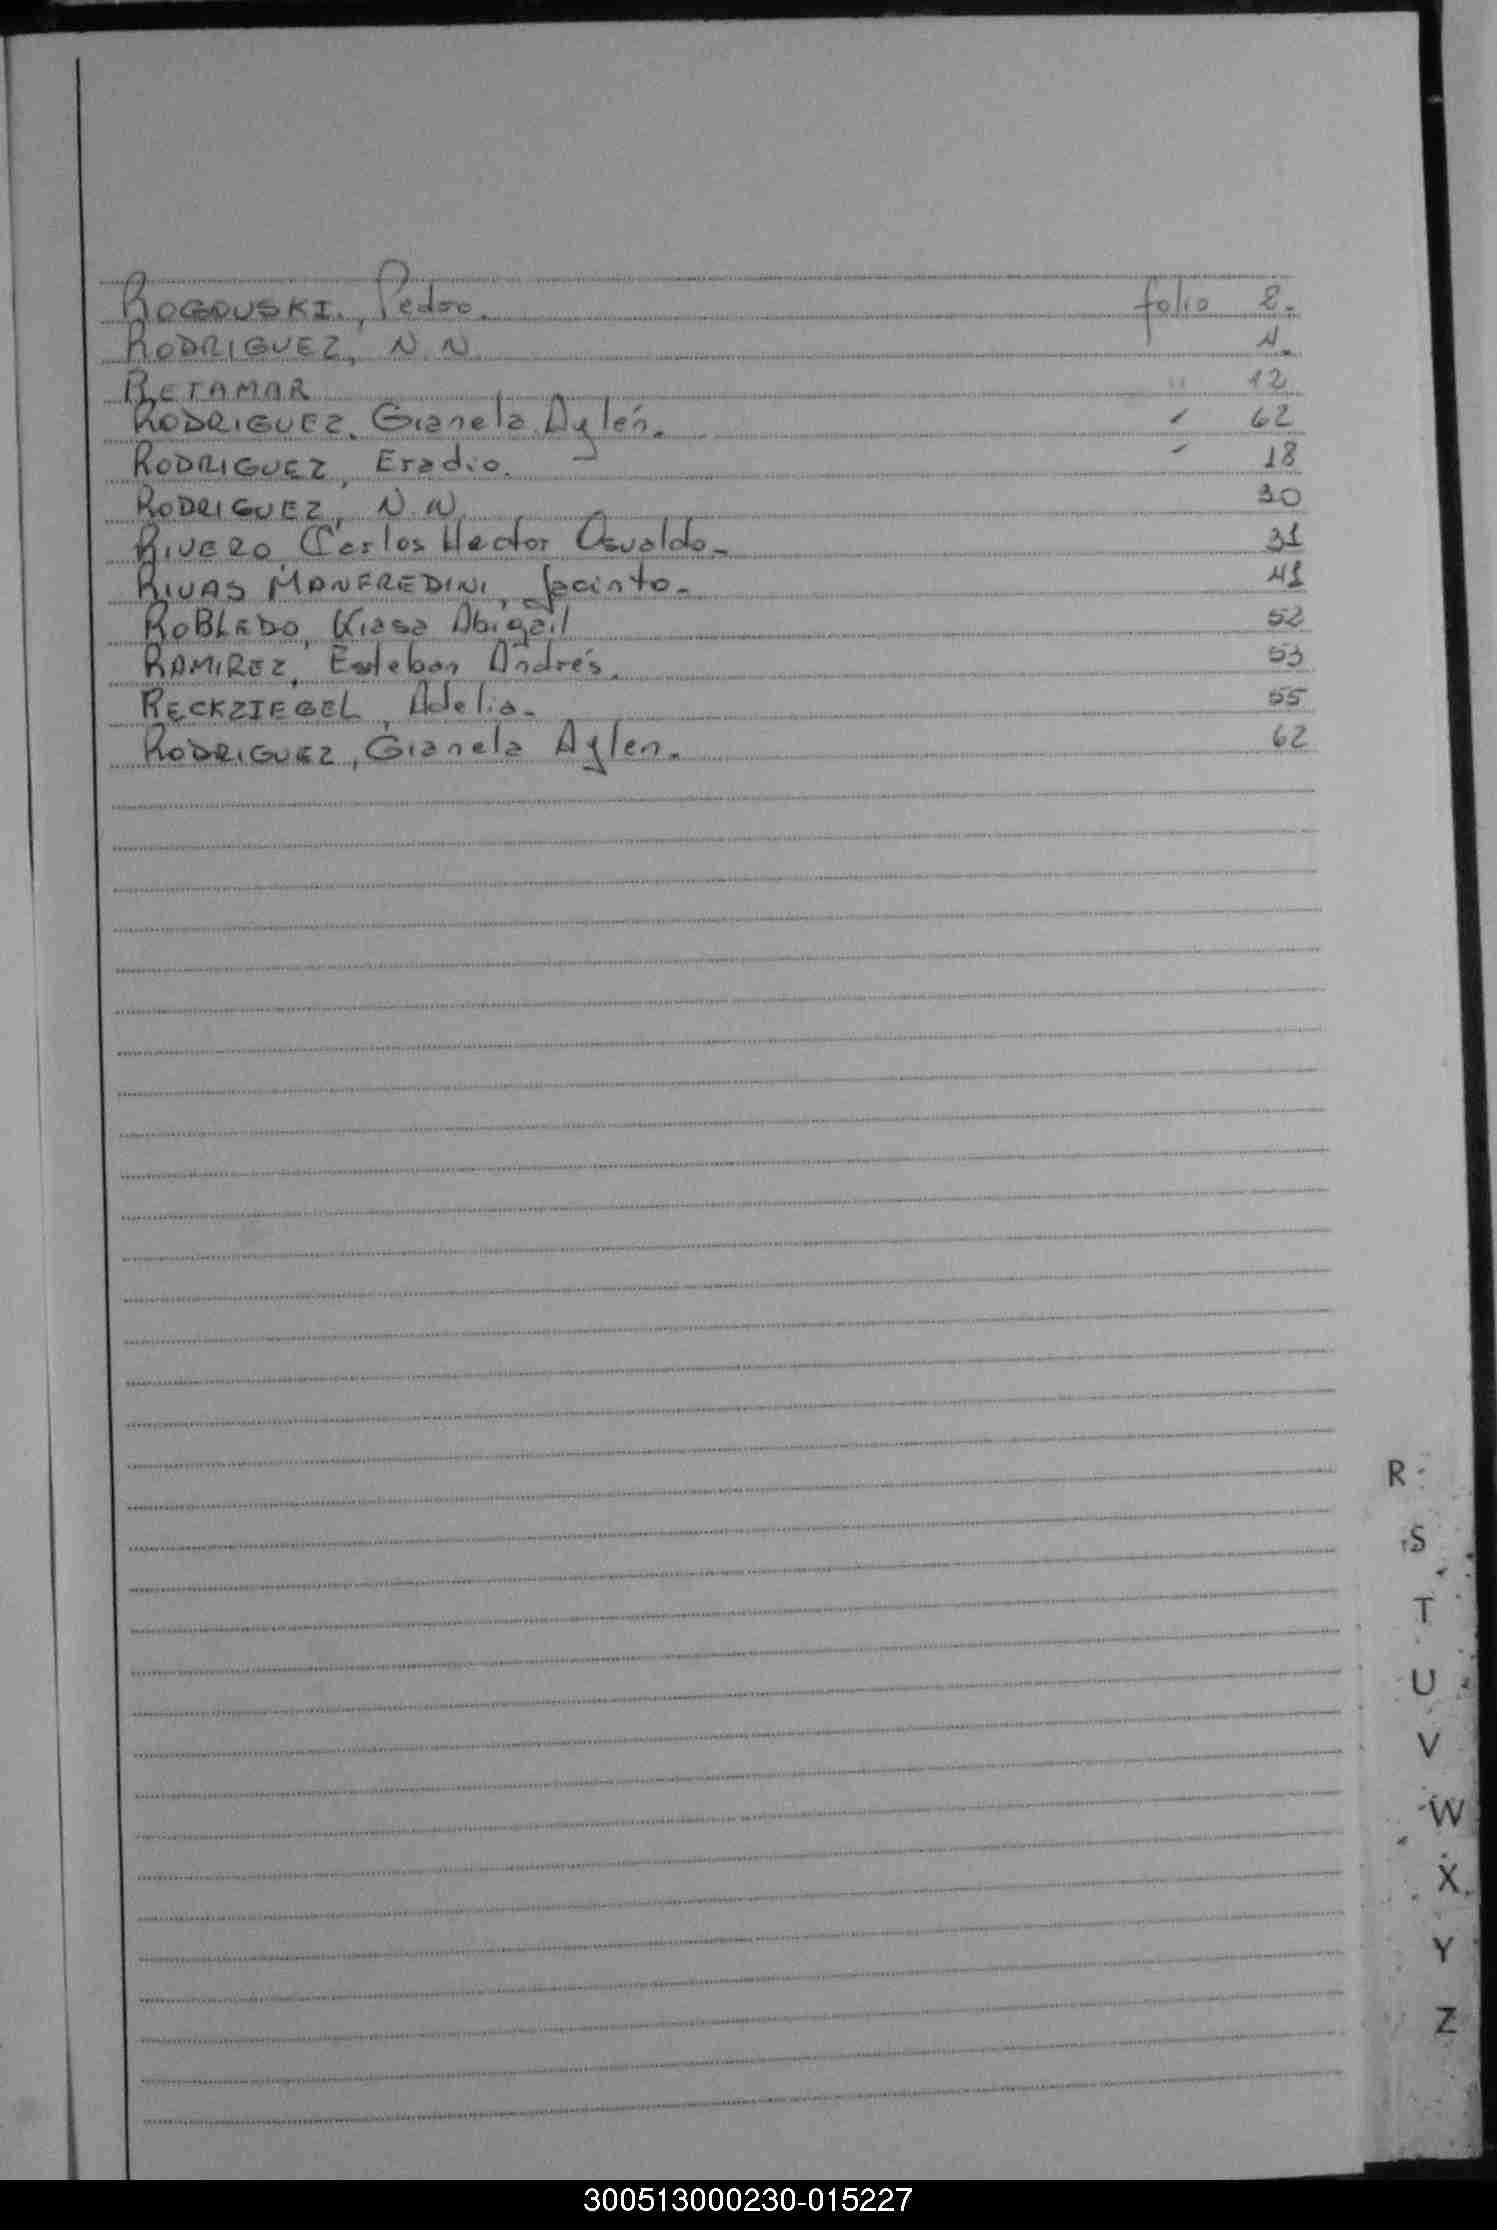 ROGOUSKI, Pedro. folio 2.
RODRIGUEZ, N.N. 4.
RETAMAR " 12
RODRIGUEZ, Gianela Aylén. " 62
RODRIGUEZ, Eradio. " 18
RODRIGUEZ, N.N. 30
RIVERO, Carlos Hector Osvaldo- 31
RIVAS MANFREDINI, Jacinto- 41
ROBLEDO, Kiasa Abigail 52
RAMIREZ, Esteban Andrés. 53
RECKZIEGEL, Adelia- 55
RODRIGUEZ, Gianela Aylen. 62
R
S
T
U
V
W
X
Y
Z
300513000230-015227